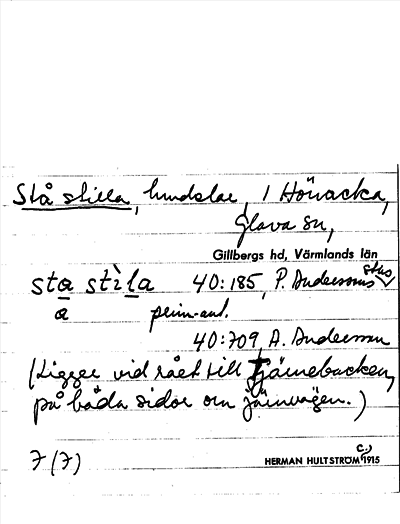 Stå stilla, hmdslar, 1 Hönacka,
Glava sn,
Gillbergs hd, Värmlands län
sta stìla 40:185, P. Anderssons stus
a penn-ant.
40:709 A. Andersson
(Ligger vid rået till Tjärnebacken,
på båda sidor om järnvägen.)
7 (7)
HERMAN HULTSTRÖM C.) 1915